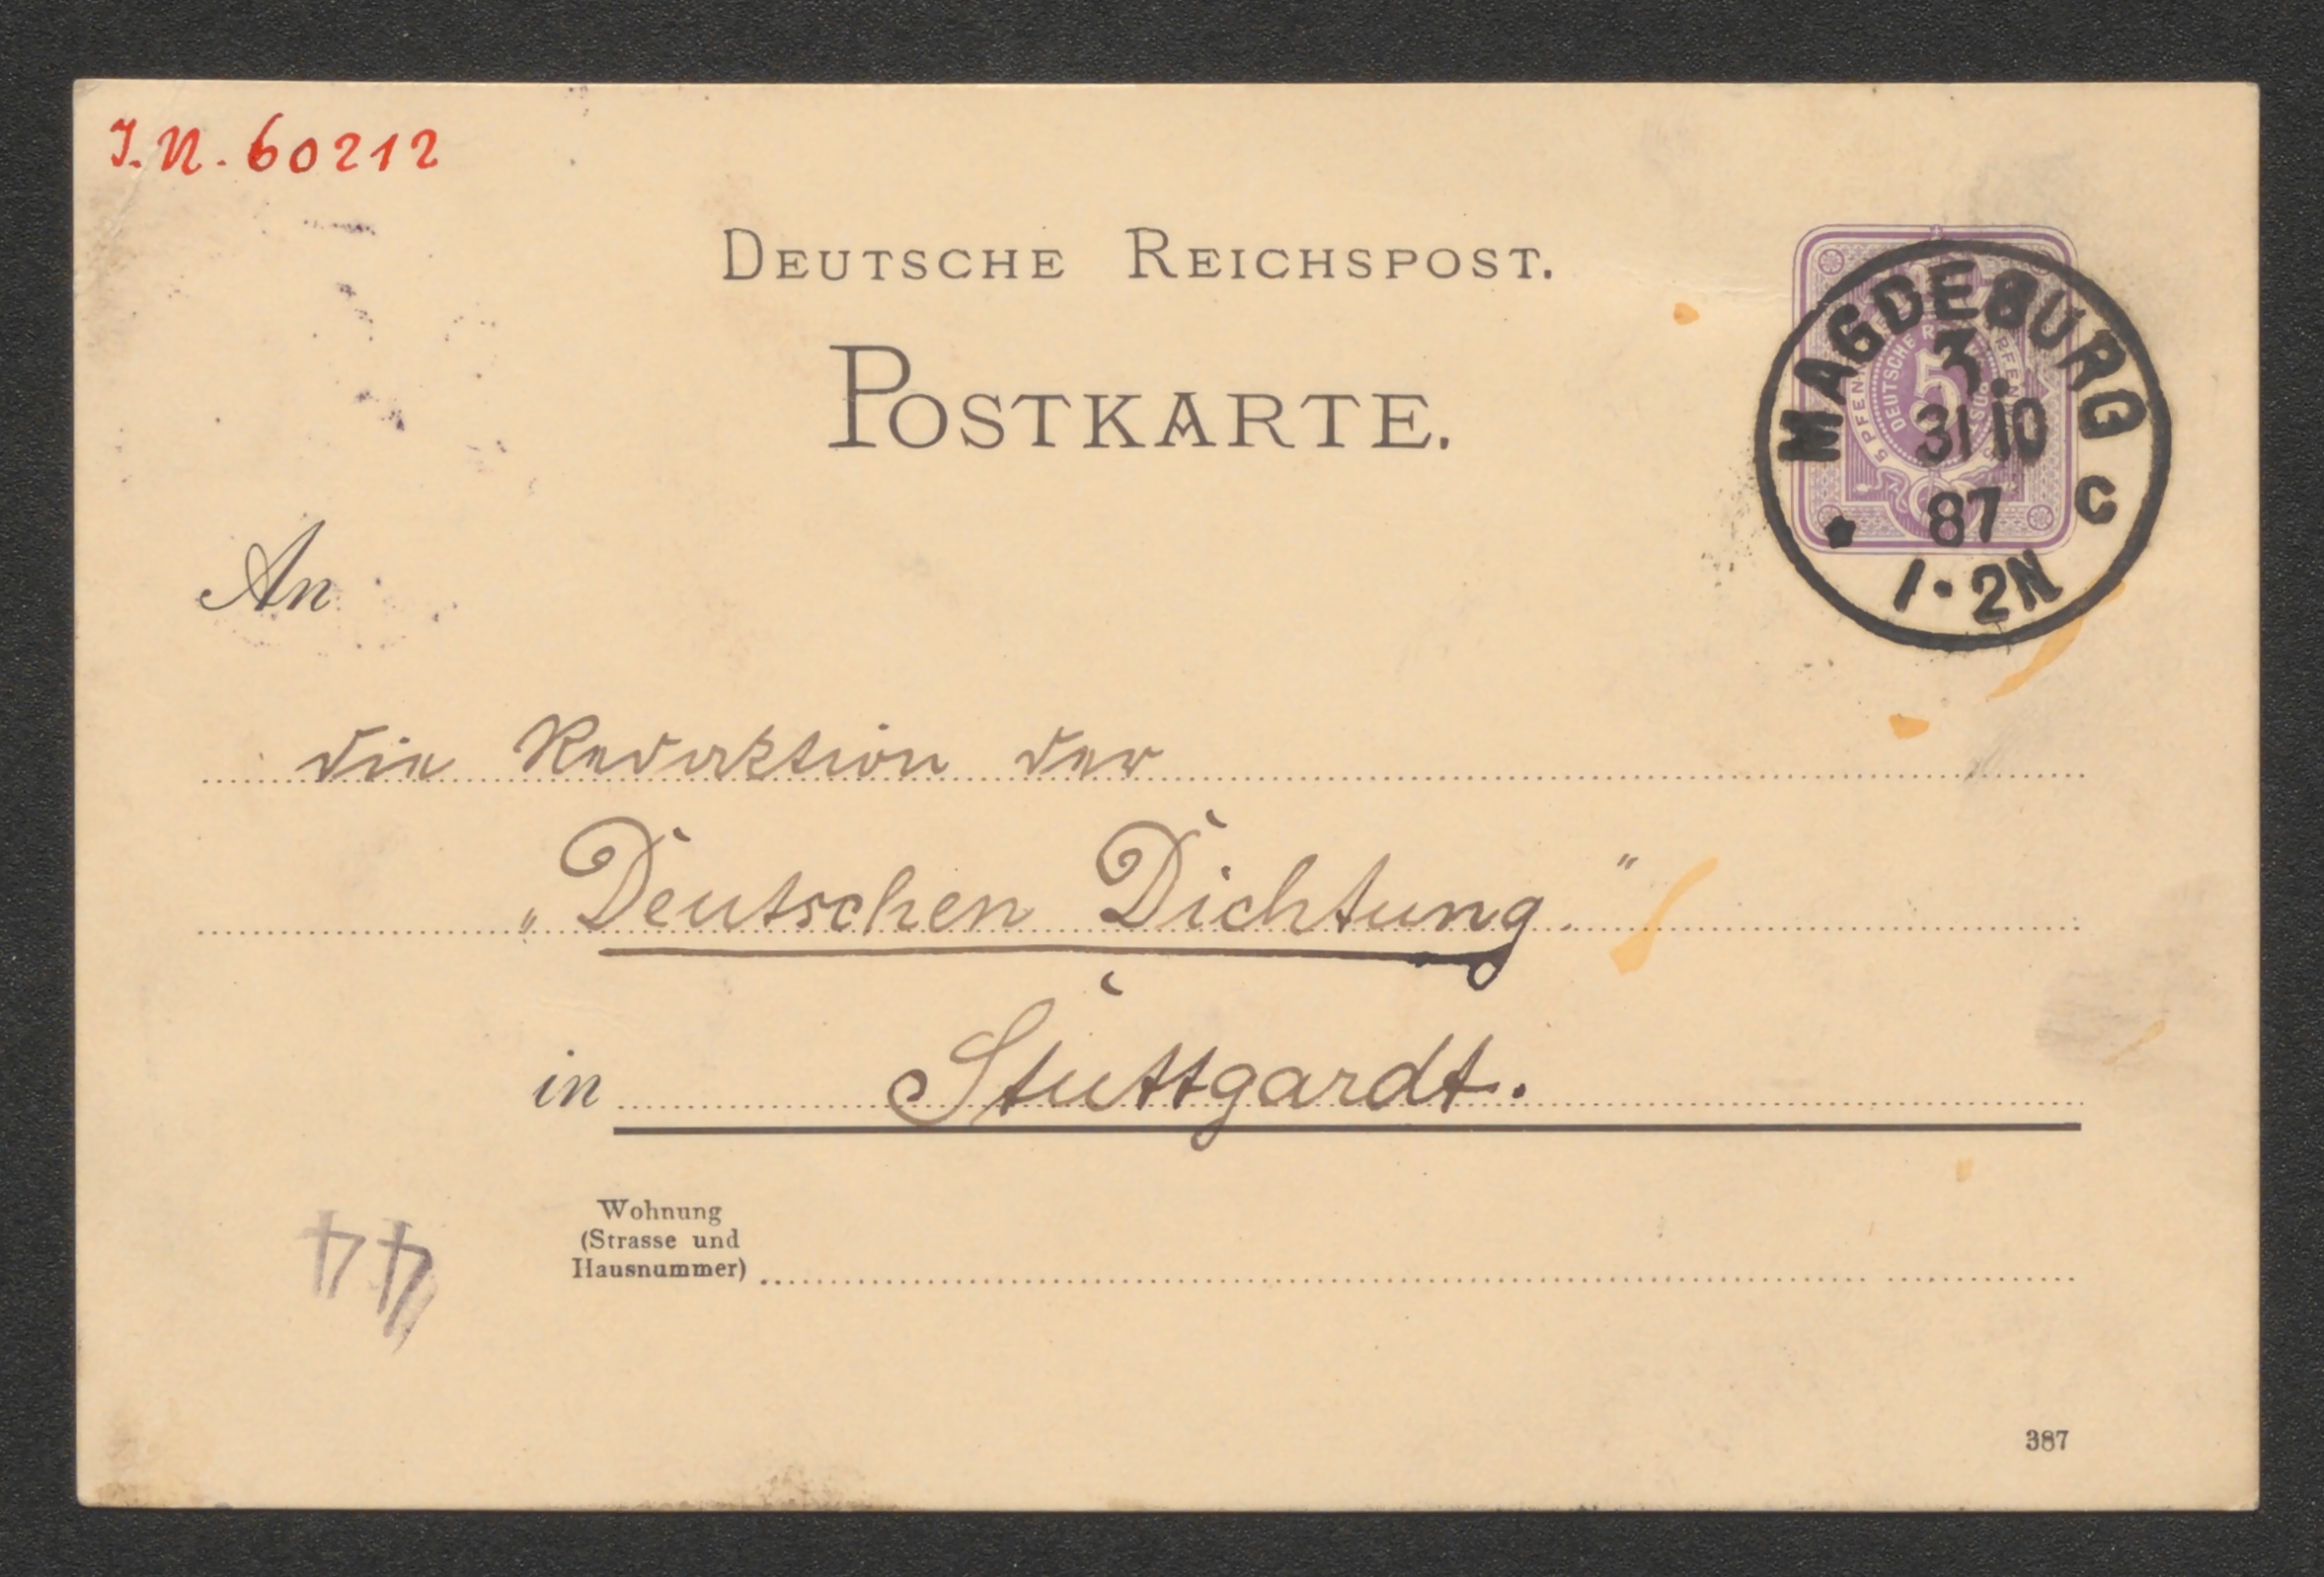 I.N. 60212
DEUTSCHE REICHSPOST.
POSTKARTE.
MAGDEBURG
3.
31 10
87
C
1-2N
5
An
die Redaktion der
„Deutschen Dichtung."
in Stuttgardt.
44
Wohnung
(Strasse und
Hausnummer)
387